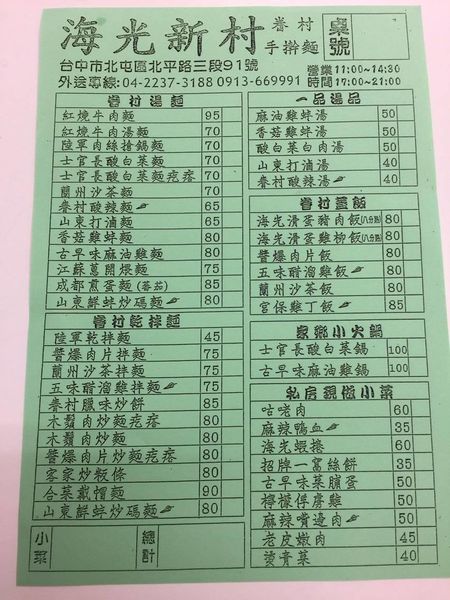 海光新村
眷村
手擀麵
桌號
台中市北屯區北平路三段91號
外送專線:04-2237-3188 0913-669991
營業 11:00~14:30
時間 17:00~21:00
眷村湯麵
紅燒牛肉麵 95
紅燒牛肉湯麵 70
陸軍肉絲搶鍋麵 70
士官長酸白菜麵 70
士官長酸白菜麵疙瘩 70
蘭州沙茶麵 70
眷村酸辣麵 65
山東打滷麵 65
香菇雞蚌麵 80
古早味麻油雞麵 80
江蘇蔥開煨麵 75
成都煎蛋麵(蕃茄) 85
山東鮮蚌炒碼麵 80
眷村乾拌麵
陸軍乾拌麵 45
醬爆肉片拌麵 75
蘭州沙茶拌麵 75
五味醋溜雞拌麵 75
眷村臘味炒餅 85
木鬚肉炒麵疙瘩 80
木鬚肉炒麵 80
醬爆肉片炒麵疙瘩 80
客家炒粄條 80
合菜戴帽麵 90
山東鮮蚌炒碼麵 80
小菜
總計
一品湯品
麻油雞蚌湯 50
香菇雞蚌湯 50
酸白菜白肉湯 50
山東打滷湯 40
眷村酸辣湯 40
眷村蓋飯
海光滑蛋豬肉飯(八分熟) 80
海光滑蛋雞柳飯(八分熟) 80
醬爆肉片飯 80
五味醋溜雞飯 80
蘭州沙茶飯 80
宮保雞丁飯 85
家鄉小火鍋
士官長酸白菜鍋 100
古早味麻油雞鍋 100
私房現做小菜
咕老肉 60
麻辣鴨血 35
海光蝦捲 60
招牌一窩絲餅 35
古早味菜脯蛋 50
檸檬俘虜雞 50
麻辣嘴邊肉 50
老皮嫩肉 45
燙青菜 40